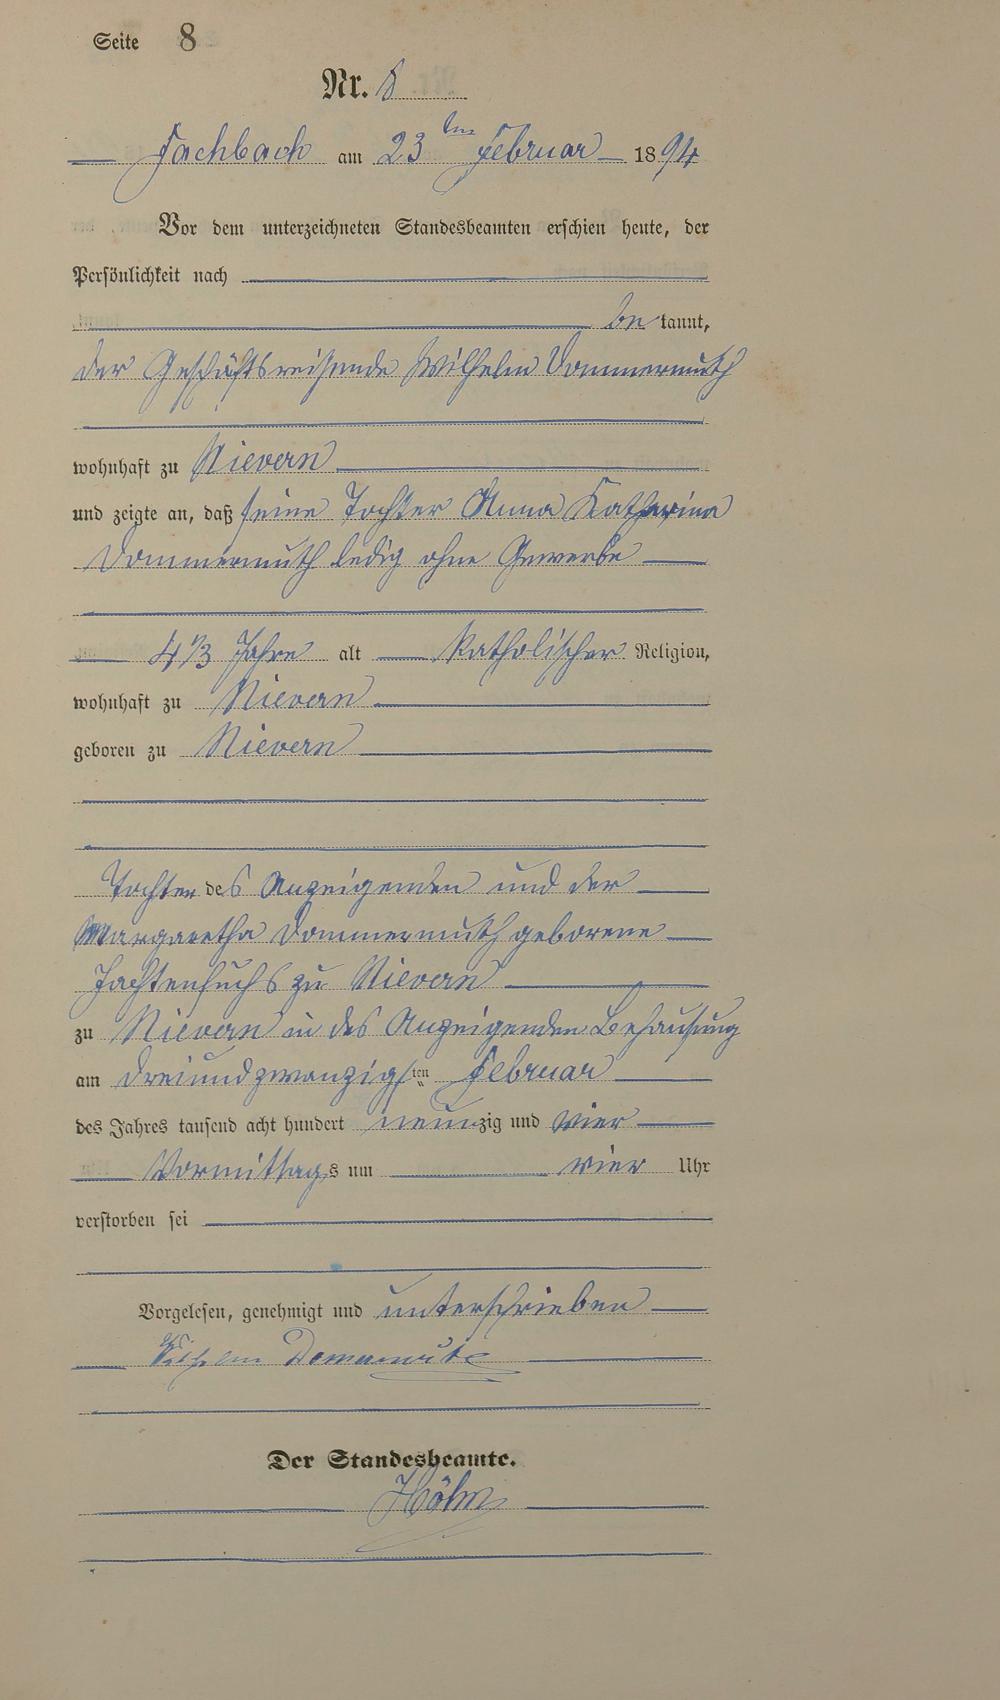 Seite 8
Nr. 8
Fachbach am 23ten Februar 1894
Vor dem unterzeichneten Standesbeamten erschien heute, der
Persönlichkeit nach
be kannt,
der Geschäftsreisende Wilhelm Dommermuth
wohnhaft zu Nievern
und zeigte an, daß seine Tochter Anna Katharina
Dommermuth ledig ohne Gewerbe
4 1/3 Jahre alt katholischer Religion,
wohnhaft zu Nievern
geboren zu Nievern
Tochter des Anzeigenden und der
Margaretha Dommermuth geborene
zu Nievern
zu Nievern in des Anzeigenden Behausung
am dreiundzwanzigsten Februar
des Jahres tausend acht hundert neunzig und vier
Vormittags um vier Uhr
verstorben sei
Vorgelesen, genehmigt und unterschrieben
Wilhelm
Der Standesbeamte.